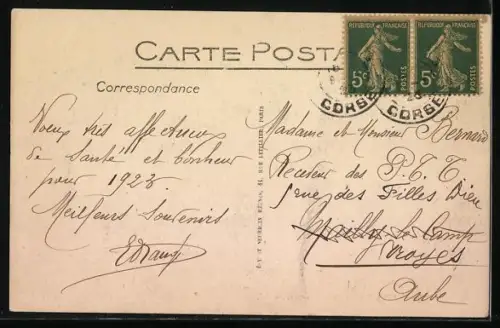 CARTE POSTA
Correspondance
RÉPUBLIQUE FRANÇAISE
5c POSTES
RÉPUBLIQUE FRANÇAISE
5c POSTES
CORSE
CORSE
Voeux très affectueux
de Santé et bonheur
pour 1928
Meilleurs Souvenirs
Madame et Monsieur Bernard
Receveur des P.T.T
5 rue des Filles Dieu
Mailly le Camp
Troyes
Aube